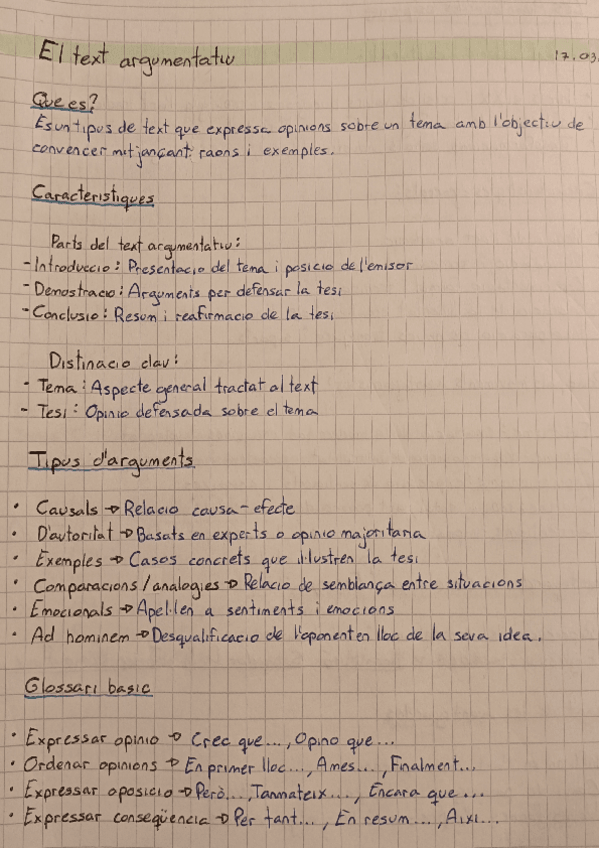 El text argumentatiu
17.03.
Que es?
Es un tipus de text que expressa opinions sobre un tema amb l'objectiu de
convencer mitjançant raons i exemples.
Caracteristiques
Parts del text argumentatiu:
- Introduccio: Presentacio del tema i posicio de l'emisor
- Demostracio: Arguments per defensar la tesi
- Conclusio: Resum i reafirmacio de la tesi
Distinacio clau:
- Tema: Aspecte general tractat al text
- Tesi: Opinio defensada sobre el tema
Tipus d'arguments
• Causals → Relacio causa-efecte
• D'autoritat → Basats en experts o opinio majoritaria
• Exemples → Casos concrets que il·lustren la tesi
• Comparacions/analogies → Relacio de semblança entre situacions
• Emocionals → Apel·len a sentiments i emocions
• Ad hominem → Desqualificacio de l'oponent en lloc de la seva idea.
Glossari basic
• Expressar opinio → Crec que..., Opino que...
• Ordenar opinions → En primer lloc..., A mes..., Finalment...
• Expressar oposicio → Però..., Tanmateix..., Encara que...
• Expressar conseqüencia → Per tant..., En resum..., Aixi...